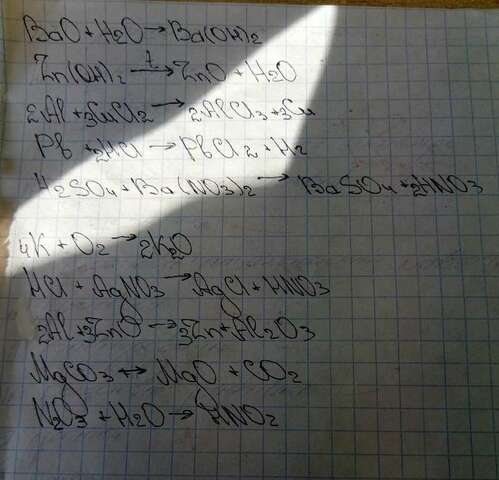 BaO + H2O → Ba(OH)2
Zn(OH)2 t→ ZnO + H2O
2Al + 3CuCl2 → 2AlCl3 + 3Cu
Pb + 2HCl → PbCl2 + H2
H2SO4 + Ba(NO3)2 → BaSO4 + 2HNO3
4K + O2 → 2K2O
HCl + AgNO3 → AgCl + HNO3
2Al + 3ZnO → 3Zn + Al2O3
MgCO3 ↔ MgO + CO2
N2O3 + H2O → HNO2